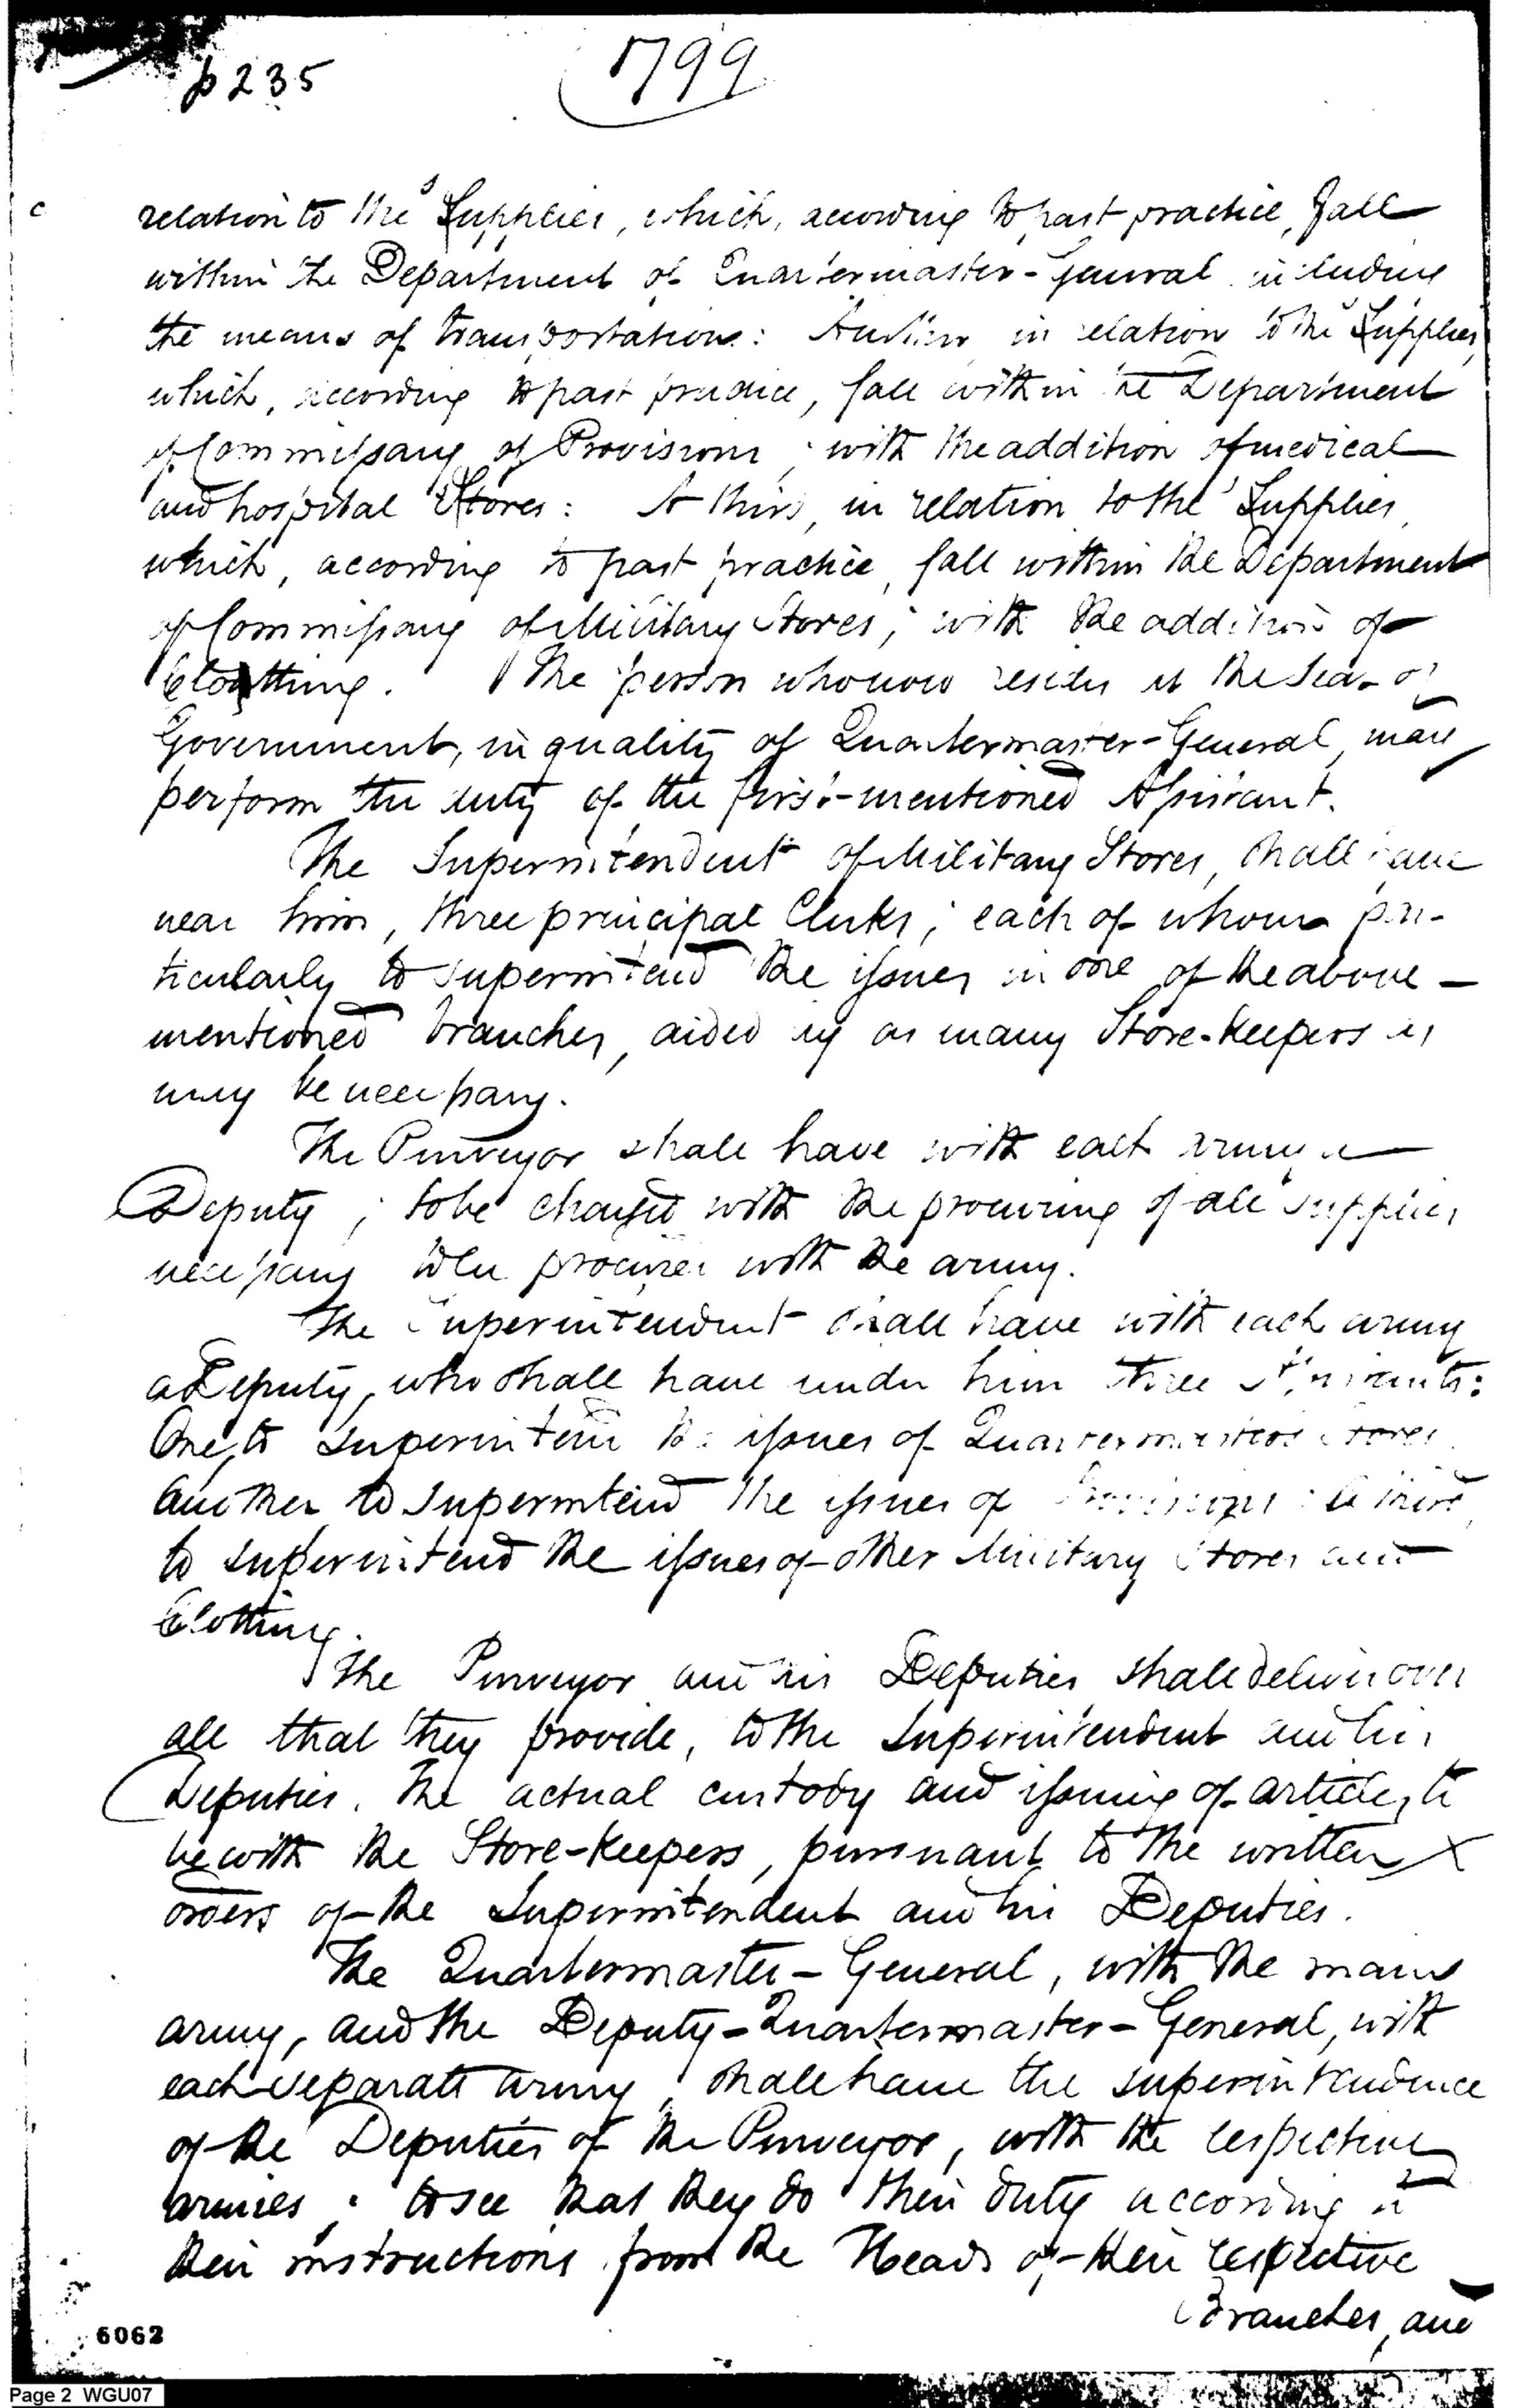 p 235
1799
relation to the Supplies, which, according to past practice, fall
within the Department of Quartermaster-General including
the means of transportation: Another in relation to the Supplies,
which, according to past practice, fall within the Department
of Commissary of Provisions; with the addition of medical
and hospital Stores: A third, in relation to the Supplies,
which, according to past practice, fall within the Department
of Commissary of Military Stores; with the addition of
Cloathing. The person who now resides at the Seat of
Government, in quality of Quartermaster-General, may
perform the duty of the first-mentioned Assistant.
The Superintendent of Military Stores, shall have
near him, three principal Clerks; each of whom par-
ticularly to superintend the issues in one of the above-
mentioned branches, aided by as many Store-keepers as
may be necessary.
The Purveyor shall have with each army a
Deputy; to be charged with the procuring of all supplies
necessary to be procured with the army.
The Superintendent shall have with each army
a Deputy, who shall have under him three Assistants:
One, to superintend the issues of Quartermasters Stores
another to superintend the issues of Provisions: a third,
to superintend the issues of other Military Stores and
Clothing.
The Purveyor and his Deputies shall deliver over
all that they provide, to the Superintendent and his
Deputies. The actual custody and issuing of articles, to
be with the Store-keepers, pursuant to the written
orders of the Superintendent and his Deputies.
The Quartermaster-General, with the main
army, and the Deputy-Quartermaster-General, with
each separate army, shall have the superintendence
of the Deputies of the Purveyor, with the respective
armies; to see that they do their duty according to
their instructions from the Heads of their respective
Branches, and
6062
Page 2 WGU07